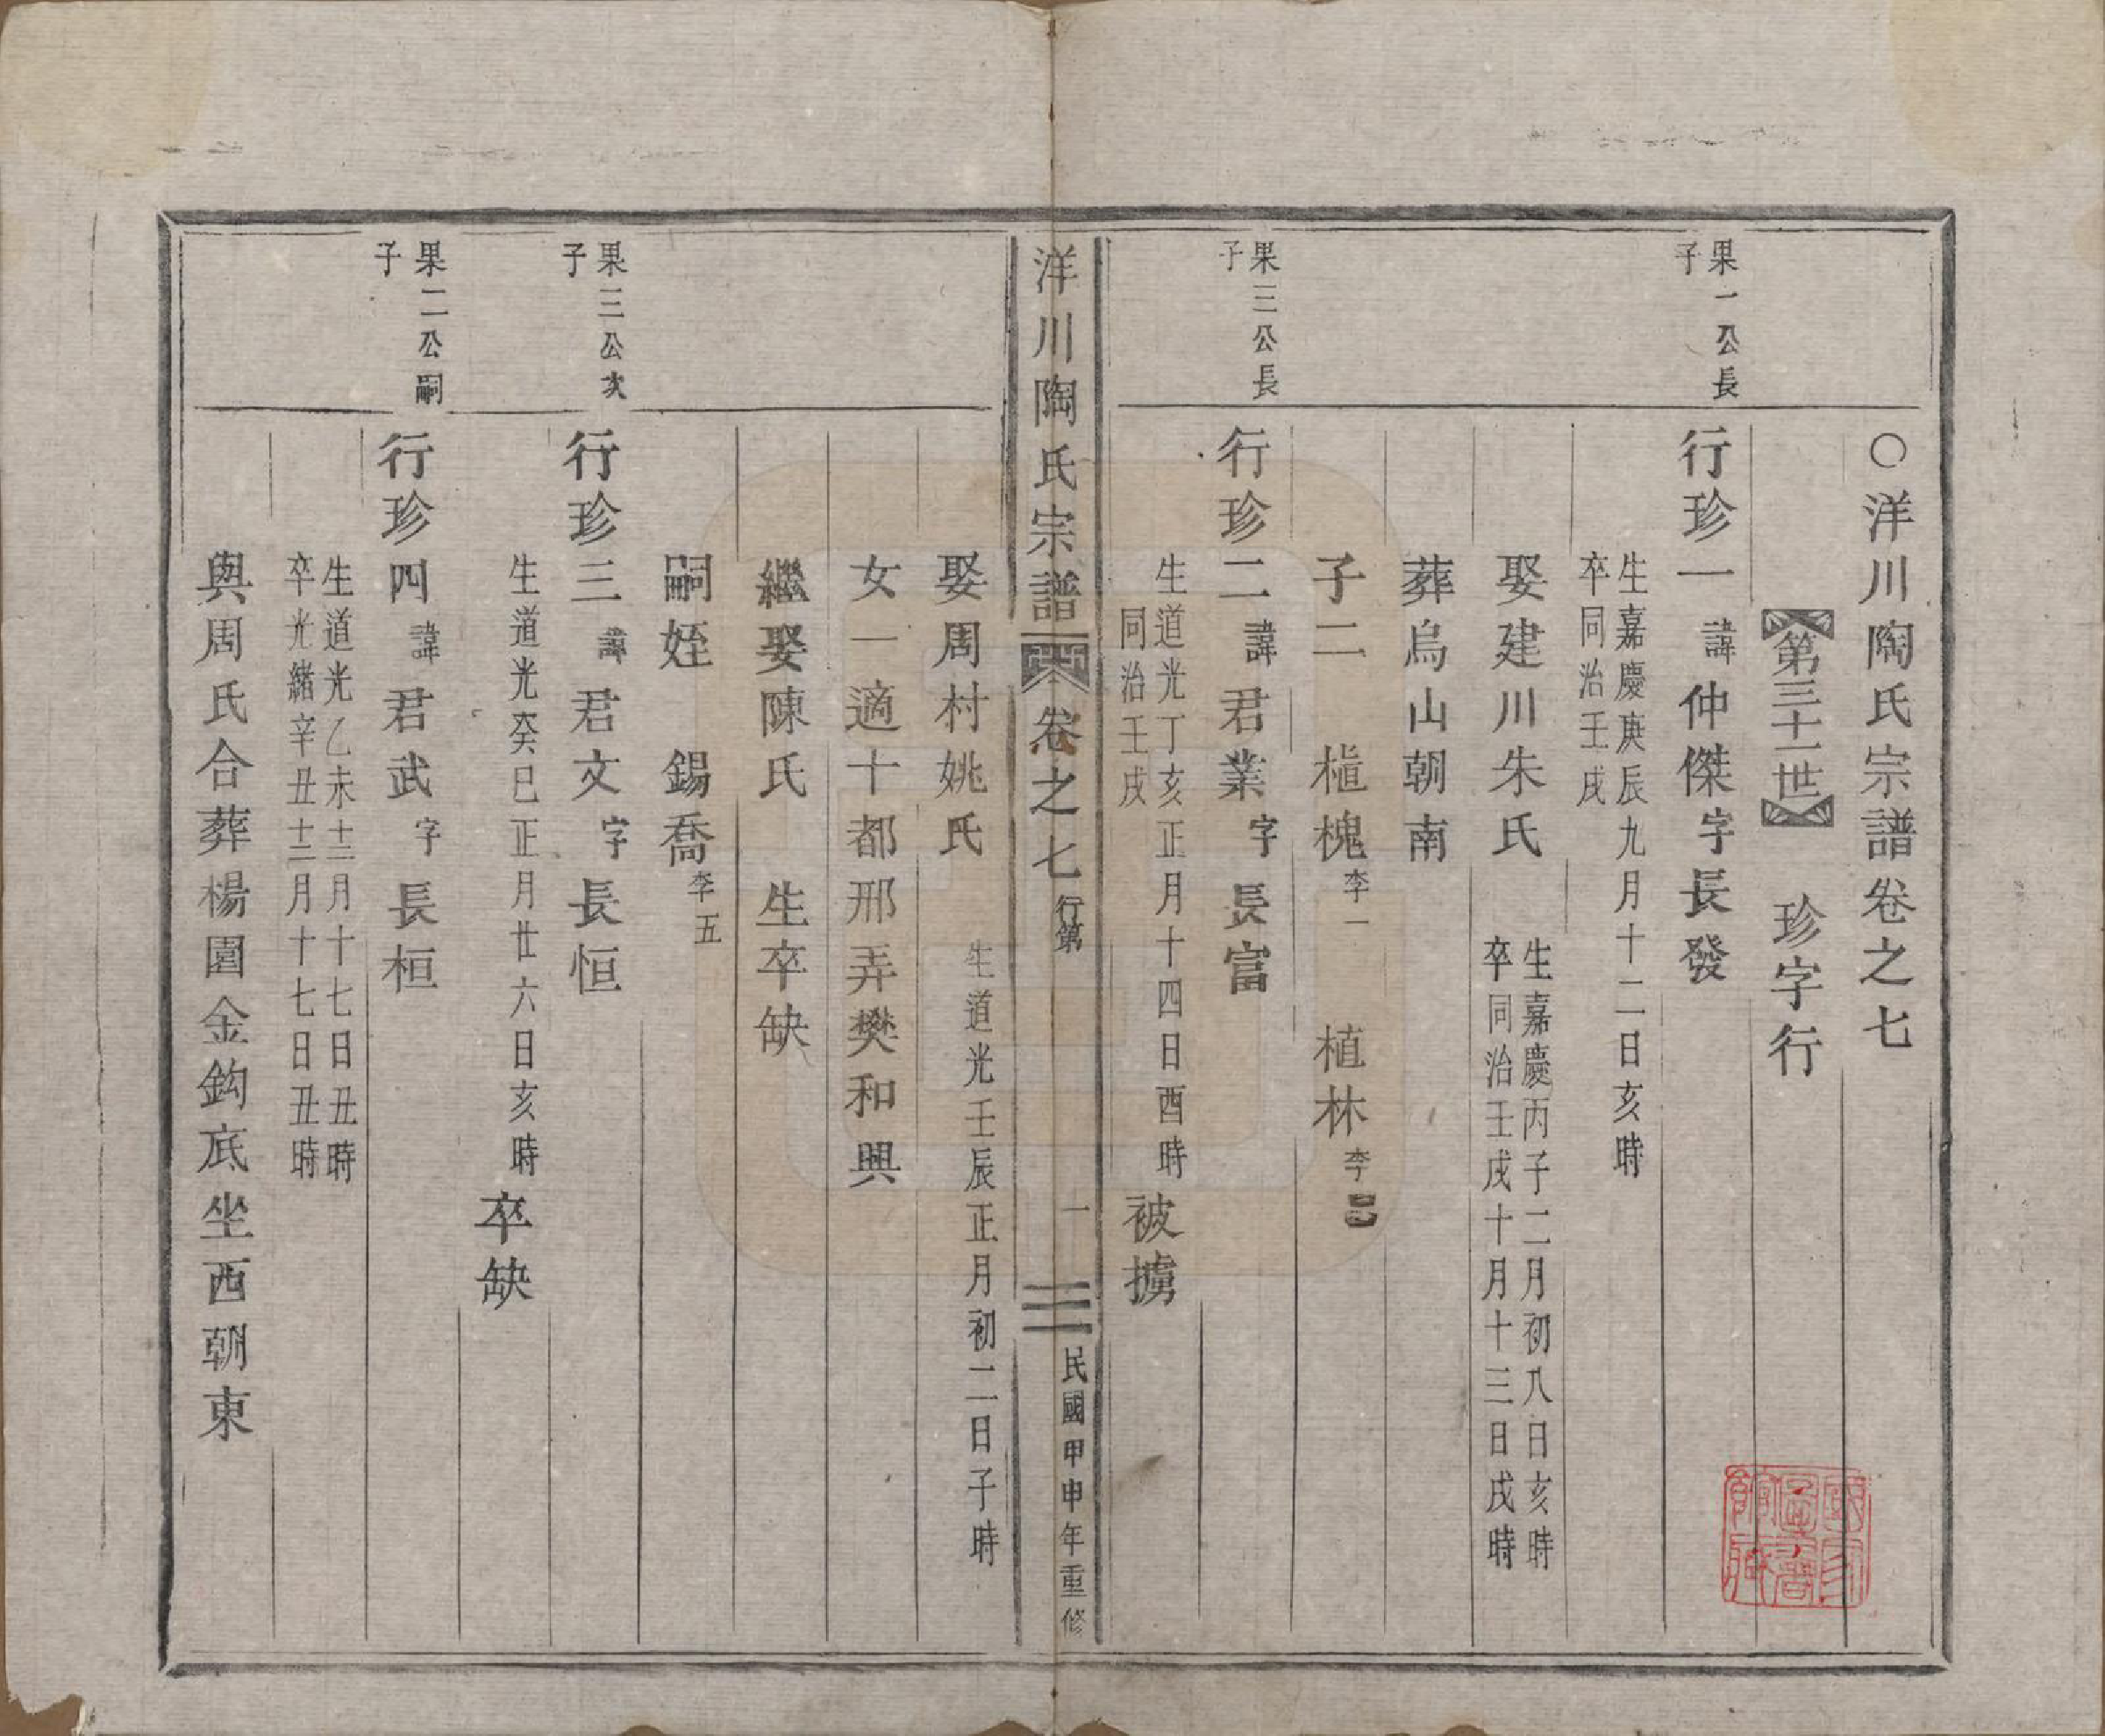 〇洋川陶氏宗譜卷之七
第三十一世 珍字行
果一公長子
行珍一 諱 仲傑 字 長發
生嘉慶庚辰九月十二日亥時
卒同治壬戌
娶建川朱氏
生嘉慶丙子二月初八日亥時
卒同治壬戌十月十三日戌時
葬烏山朝南
子二 植槐 李一 植林 李
果三公長子
行珍二 諱 君業 字 長富
生道光丁亥正月十四日酉時
同治壬戌
被擄
洋川陶氏宗譜 卷之七 行第 一 民國甲申年重修
娶周村姚氏
生道光壬辰正月初二日子時
女一適十都邢弄樊和興
繼娶陳氏 生卒缺
嗣姪 錫喬 李五
果三公次子
行珍三 諱 君文 字 長恒
生道光癸巳正月廿六日亥時
卒缺
果二公嗣子
行珍四 諱 君武 字 長桓
生道光乙未十二月十七日丑時
卒光緒辛丑十二月十七日丑時
與周氏合葬楊園金鈎底坐西朝東
國家圖書館藏